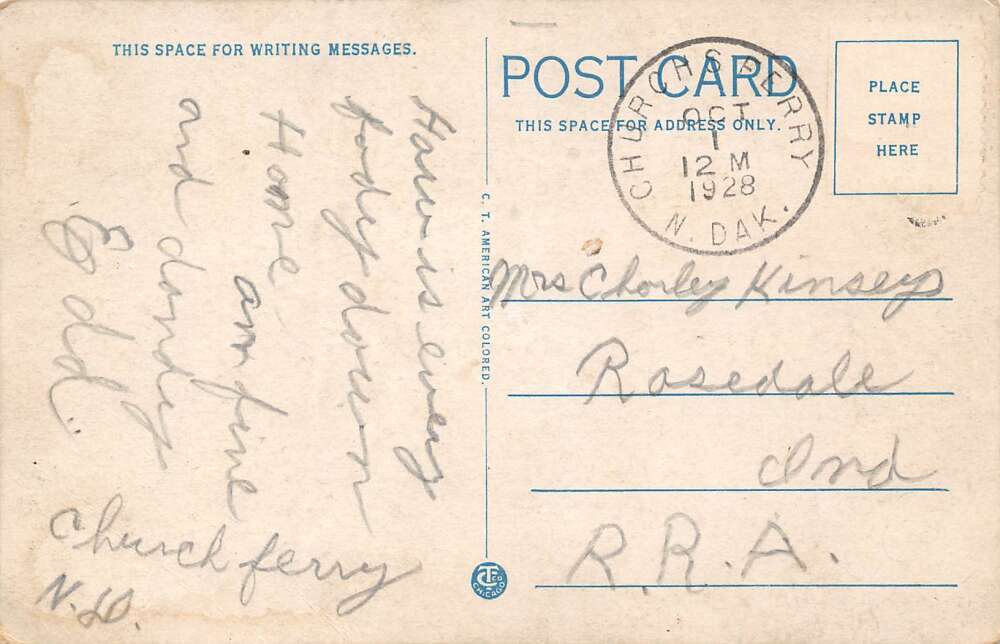 THIS SPACE FOR WRITING MESSAGES.
How is every
body down
Home
am fine
and dandy
Edd.
Church ferry
N.D.
C. T. AMERICAN ART COLORED.
POST CARD
THIS SPACE FOR ADDRESS ONLY.
CHURCHS FERRY
OCT
1
12 M
1928
N. DAK.
PLACE
STAMP
HERE
Mrs Charley Kinseys
Rosedale
Ind
R. R. A.
CT
CO
CHICAGO